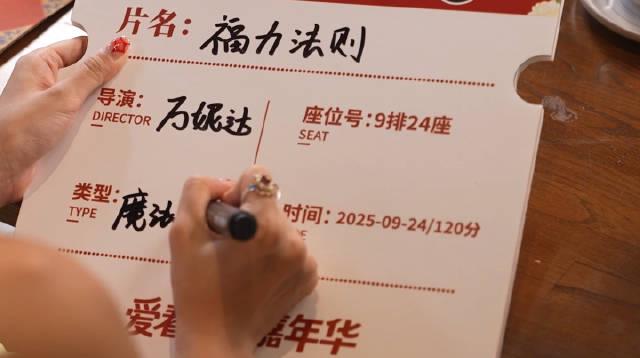 片名： 福力法则
导演： 万妮达 座位号：9排24座
DIRECTOR SEAT
类型： 魔法 时间：2025-09-24/120分
TYPE
爱看 嘉年华